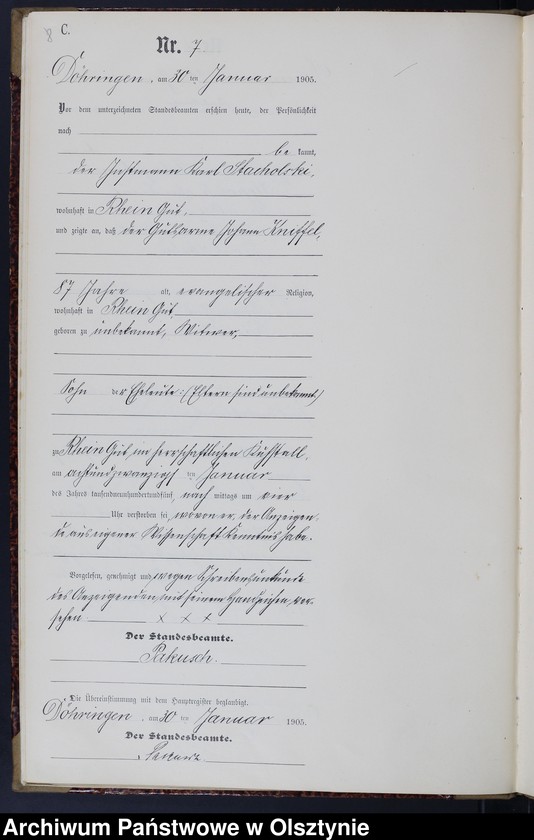 8 C.
Nr. 7
Döhringen, am 30 ten Januar 1905.
Vor dem unterzeichneten Standesbeamten erschien heute, der Persönlichkeit
nach
be kannt,
der Instmann Karl Stacholski,
wohnhaft in Rhein Gut,
und zeigte an, daß der Gutsarme Johann Kniffel,
87 Jahre alt, evangelischer Religion,
wohnhaft in Rhein Gut
geboren zu unbekannt, Witwer,
Sohn der Eheleute :/ Eltern sind unbekannt /
zu Rhein Gut im herrschaftlichen Kuhstall,
am achtundzwanzigsten Januar
des Jahres tausendneunhundertundfünf, nach mittags um vier
Uhr verstorben sei, wovon er, der Anzeigen-
de aus eigener Wissenschaft Kenntnis habe.
Vorgelesen, genehmigt und wegen Schreibensunkunde
des Anzeigenden mit seinem Handzeichen ver-
sehen. x x x
Der Standesbeamte.
Pakusch.
Die Übereinstimmung mit dem Hauptregister beglaubigt.
Döhringen, am 30 ten Januar 1905.
Der Standesbeamte.
Archiwum Państwowe w Olsztynie